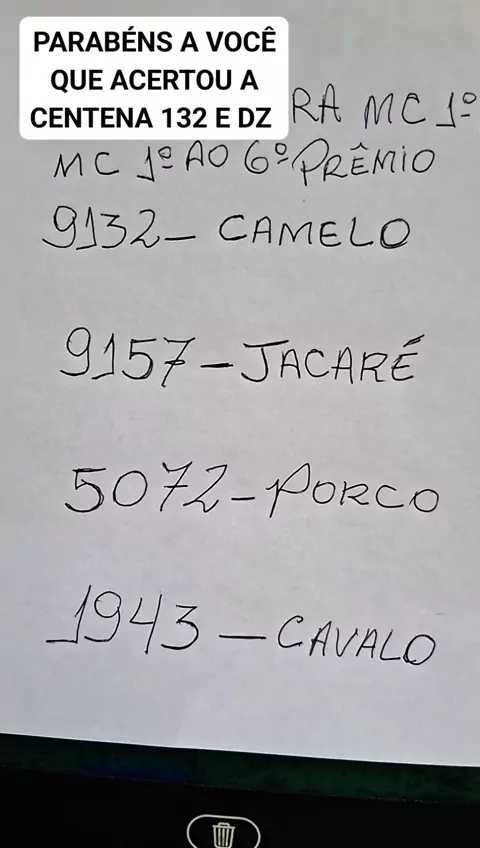 PARABÉNS A VOCÊ
QUE ACERTOU A
CENTENA 132 E DZ
RA MC 1º
MC 1º AO 6º PRÊMIO
9132 - CAMELO
9157 - JACARÉ
5072 - PORCO
1943 - CAVALO